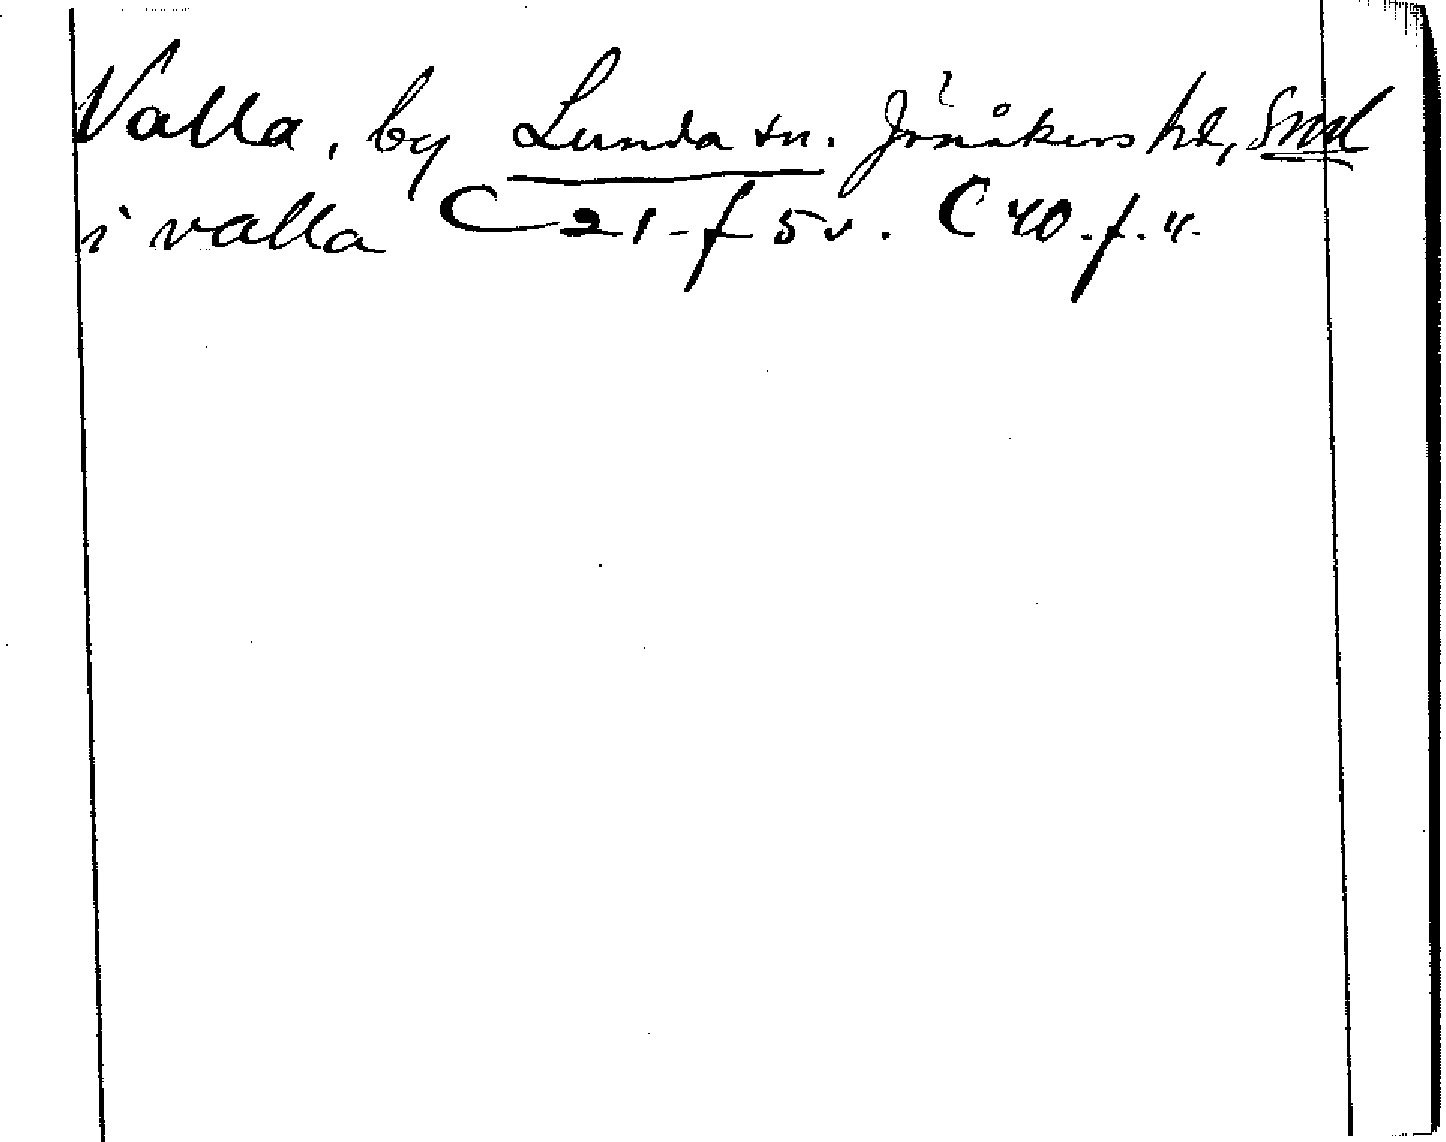 Valla, by Lunda sn. Jönåkers hd, Srml
i valla C 21 f 5 v. C 40. f. 4.